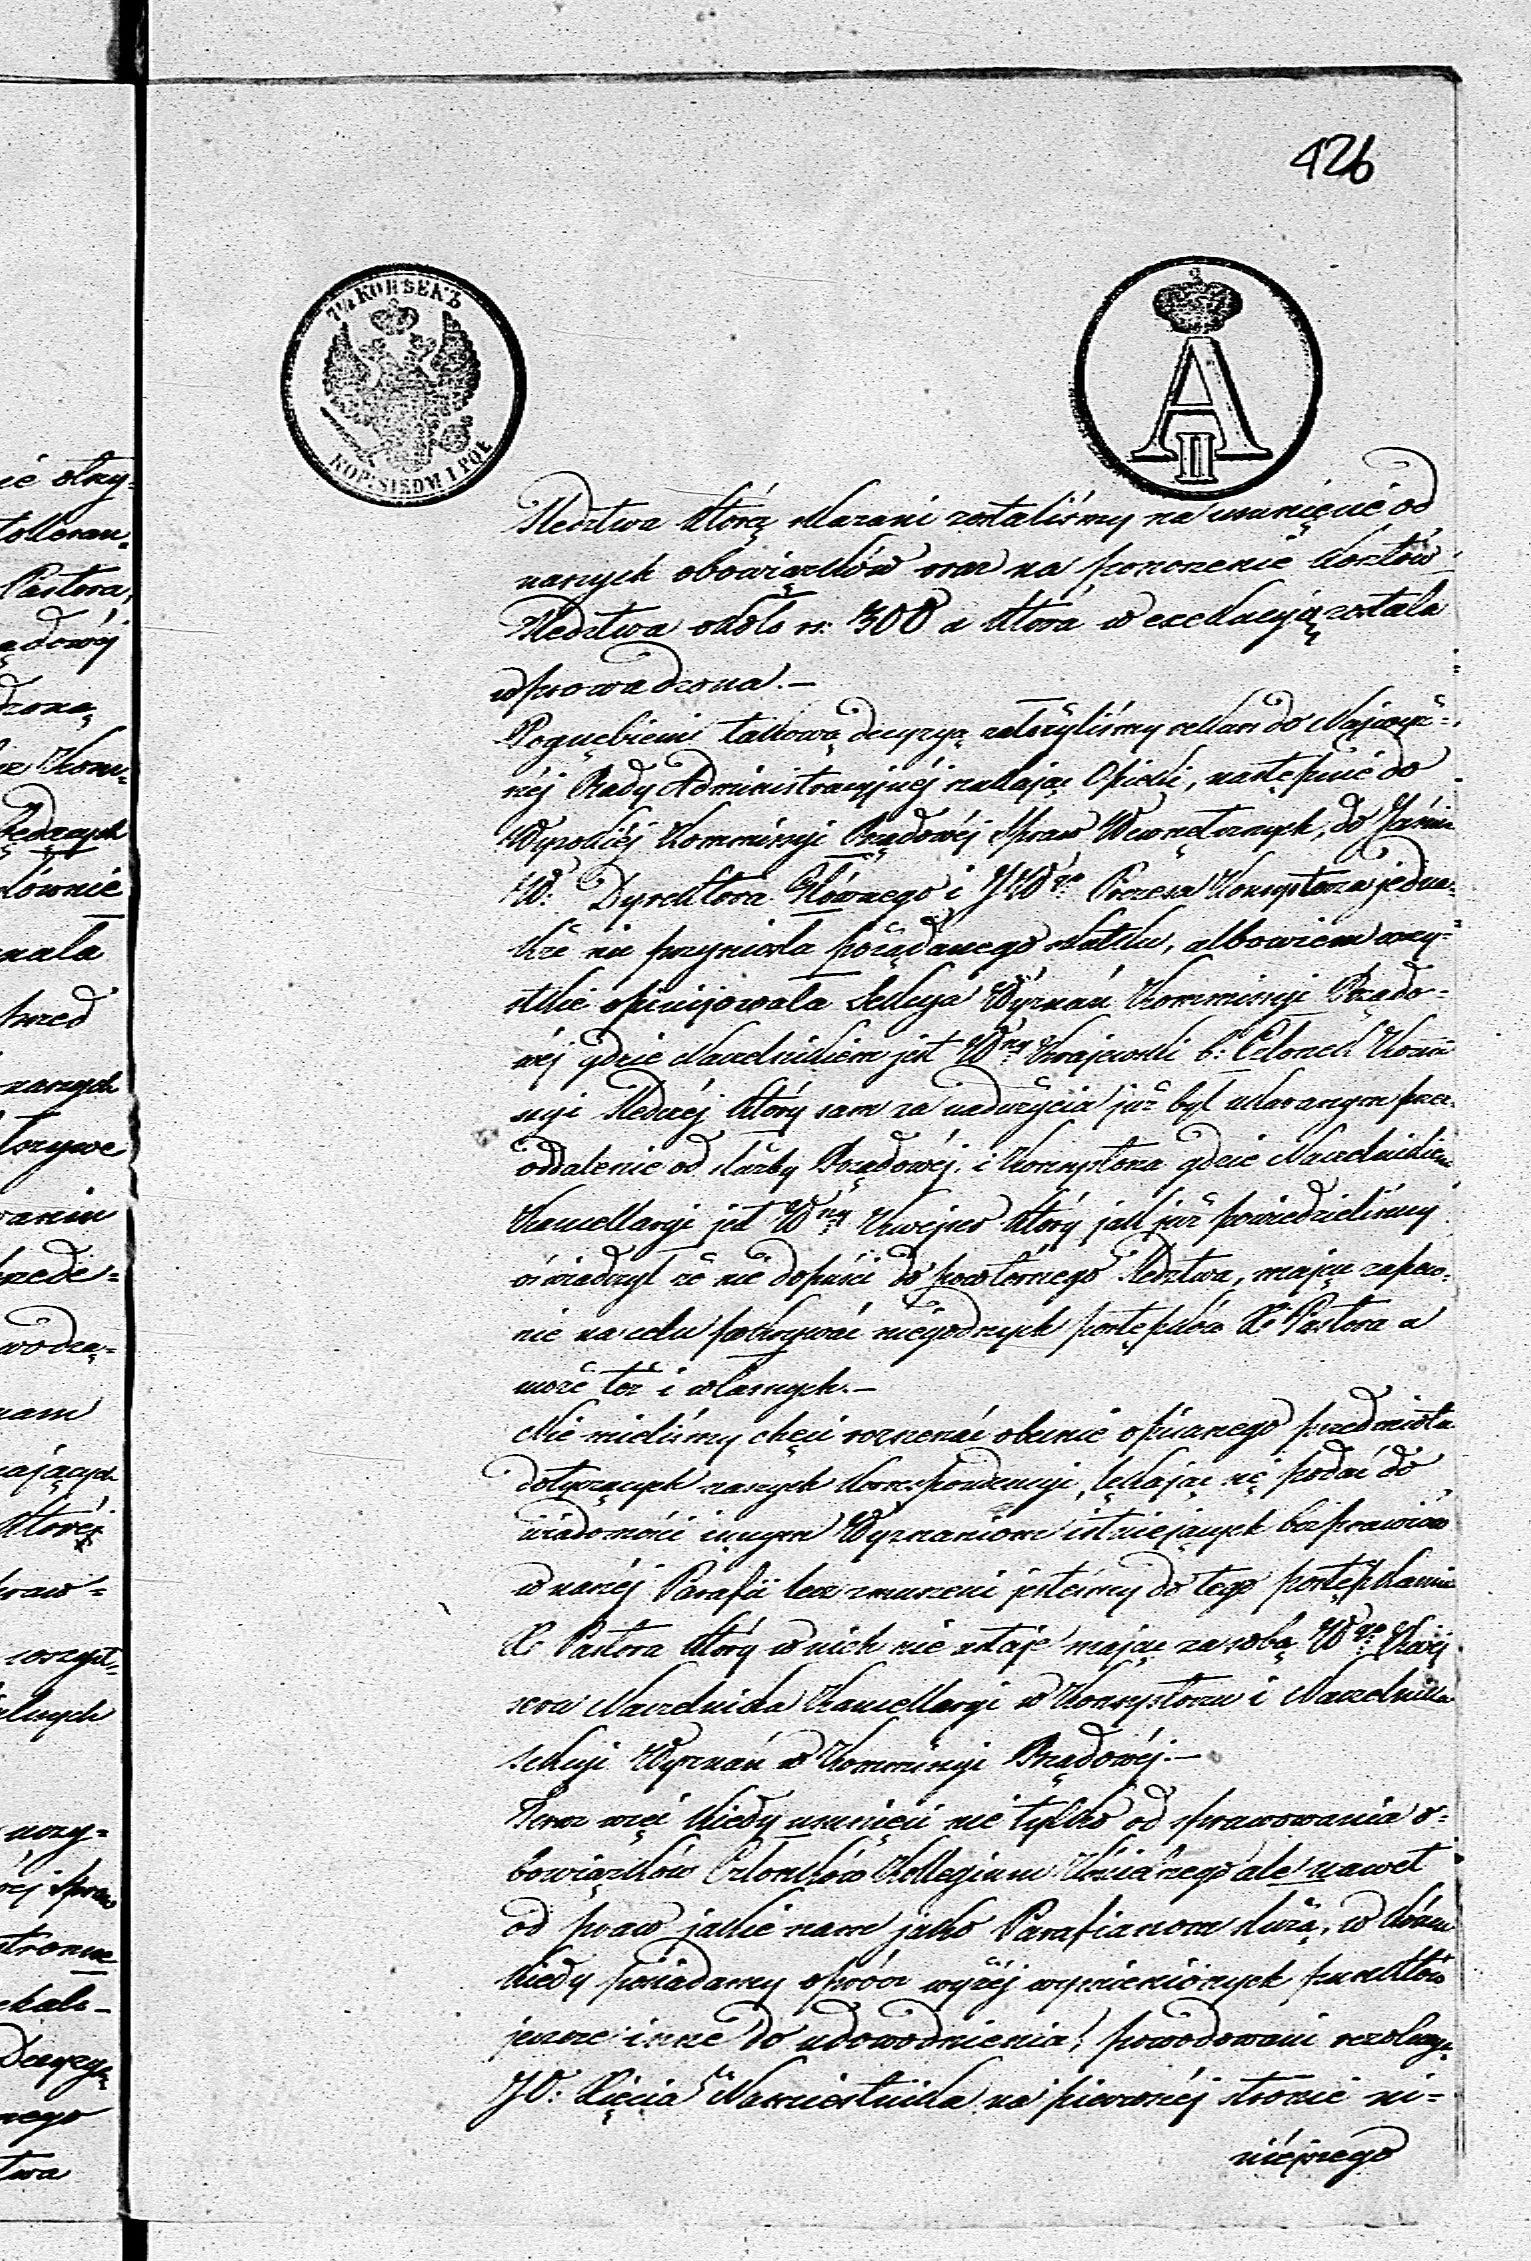 426
7½ КОПѢЕКЪ
KOP: SIEDM I PÓŁ
A II
Śledztwa którą skazani zostaliśmy na usunięcie od
naszych obowiązków oraz na ponoszenie kosztów
Śledztwa około rs: 300 a która w exekucyją została
wprowadzona.—
Pognębieni takową decyzyą założyliśmy rekurs do Najwyż=
néj Rady Administracyjnéj szukając Opieki, następnie do
Wysokiéj Kommissyi Rządowéj Spraw Wewnętrznych, do Jaśnie
W: Dyrektora Głównego i JWgo Prezesa Konsystorza jedna-
kże nie przyniosła pożądanego skutku, albowiem wszy=
stkie opinijowała Sekcya Wyznań Kommissyi Rządo=
wéj gdzie Naczelnikiem jest Wny Krajewski b: Członek Kom
issyi Śledczéj który sam za nadużycia już był ukaranym przez
oddalenie od służby Rządowéj i Konsystorza gdzie Naczelnikiem
Kancellaryi jest Wny Kwejser który jak już powiedzieliśmy
oświadczył że nie dopuści do powtórnego Śledztwa, mając zapew=
nie na celu pokrywać niegodnych postępków X. Pastora a
może też i własnych.—
Nie mieliśmy chęci roznosić obecnie opisanego przedmiotu
dotyczących naszych korrespondencyi, lękając się podać do
wiadomości innym Wyznaniom istniejących bezprawiów
w naszéj Parafii lecz zmuszeni jesteśmy do tego postępkami
X. Pastora który w nich nie ustaje mając za sobą Wgo Kwej
sera Naczelnika Kancellaryi w Konsystorzu i Naczelnika
Sekcyi Wyznań w Kommissyi Rządowéj.—
Teraz więc kiedy usunięci nie tylko od sprawowania o=
bowiązków Członków Kollegium Kościelnego ale nawet
od praw jakie nam jako Parafianom służą, w
kiedy posiadamy oprócz wyżéj wymienionych punktów
jeszcze inne do udowodnienia, powodowani rezolucyą
JO: Xięcia Namiestnika na pierwszéj stronie ni=
niéjszego